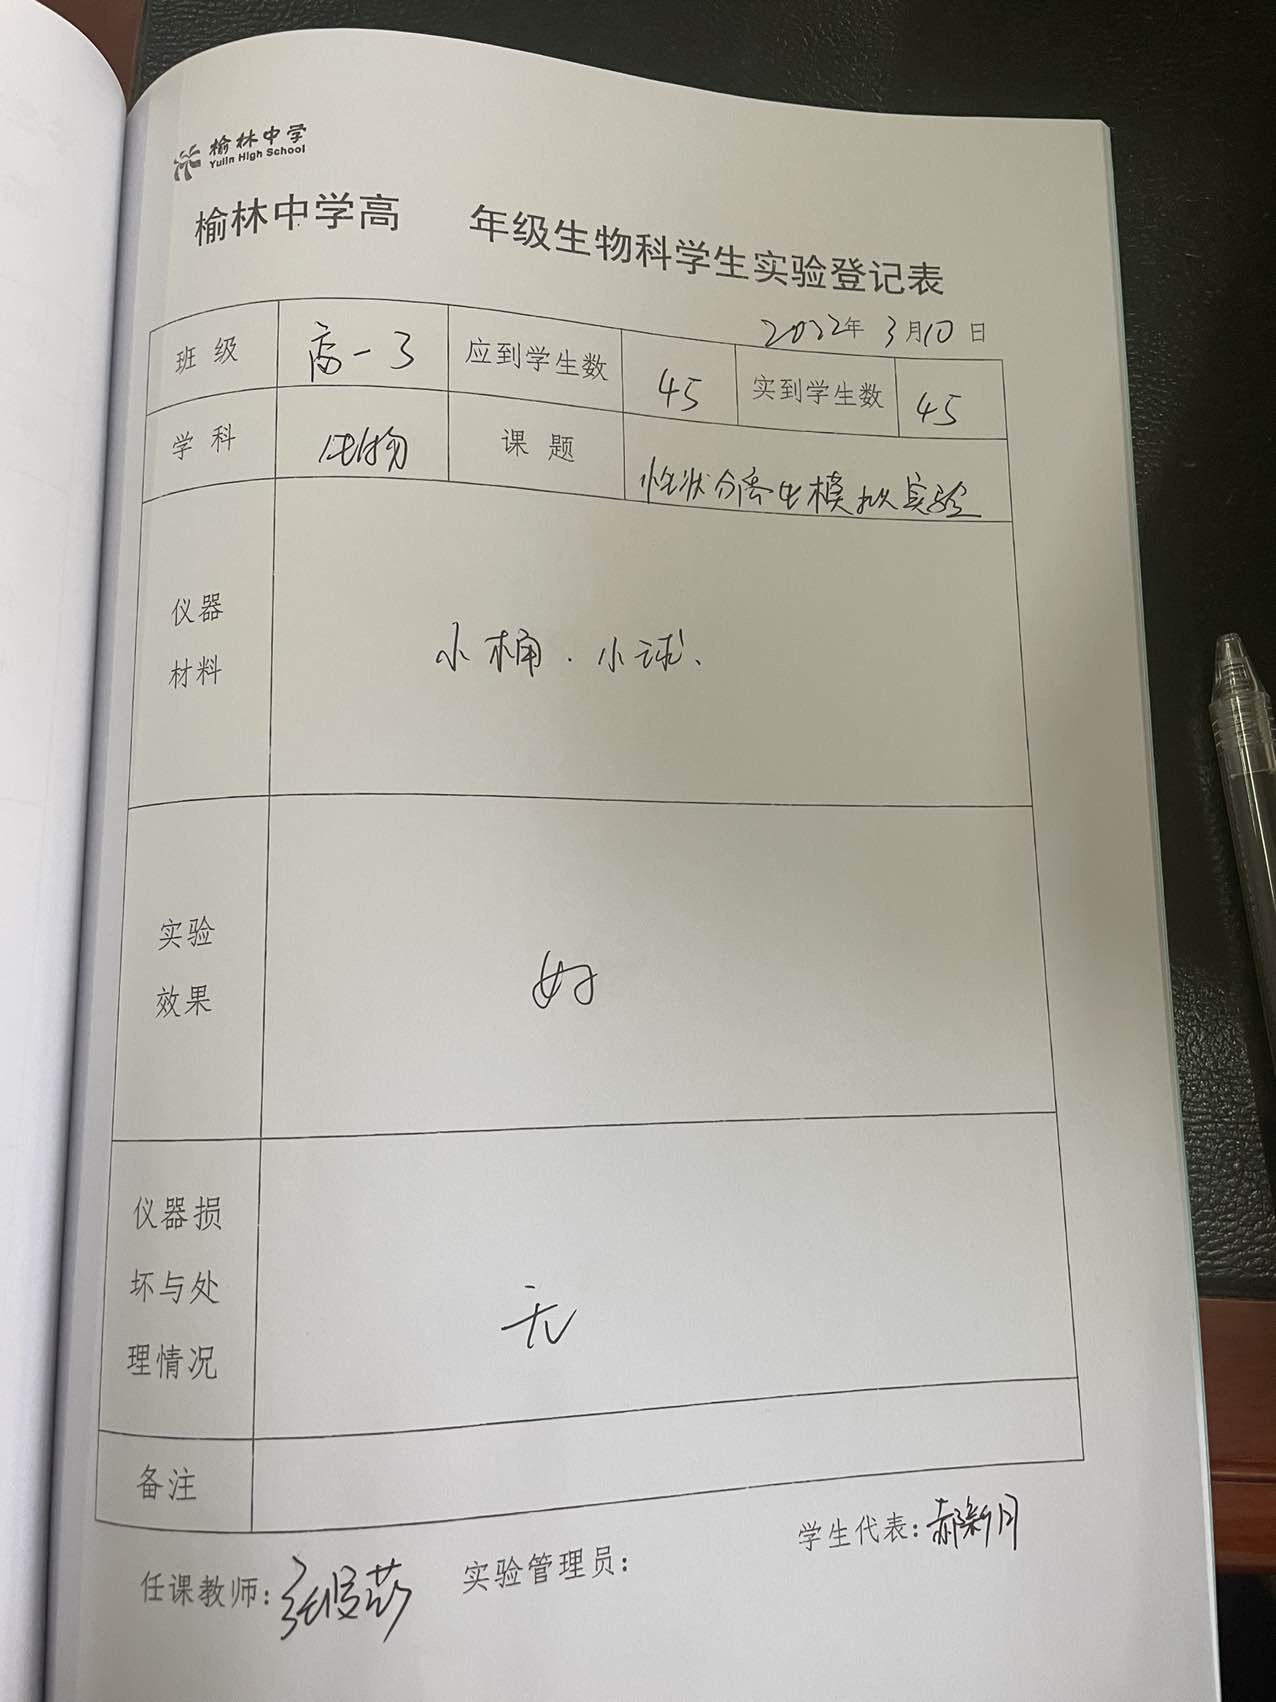 榆林中学
Yulin High School
榆林中学高 年级生物科学生实验登记表
2022年 3月10日
班 级 高一3 应到学生数 45 实到学生数 45
学 科 生物 课 题 性状分离比模拟实验
仪器
材料
小桶、小球、
实验
效果
好
仪器损
坏与处
理情况
无
备注
任课教师: 实验管理员: 学生代表: 郝新月